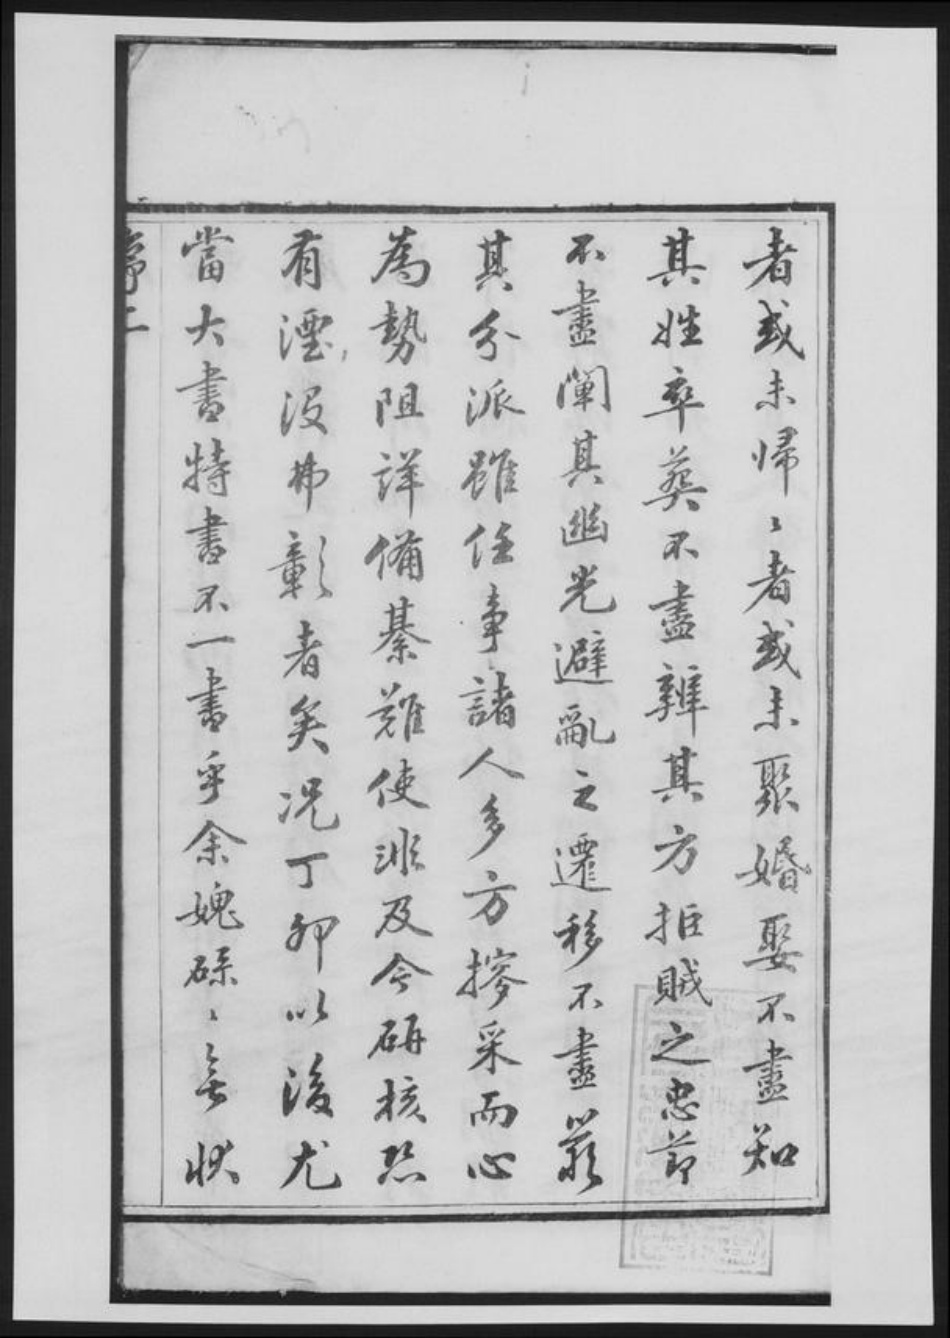 者或未歸〻者或未聚婚娶不盡知
其姓卒葬不盡辨其方拒賊之忠節
不盡闡其幽光避亂之遷移不盡叢
其分派雖任事諸人多方摻采而心
為勢阻詳備綦難使非及今研核恐
有湮沒弗彰者矣況丁卯以後尤
當大書特書不一書乎余媿碌〻無狀
序二